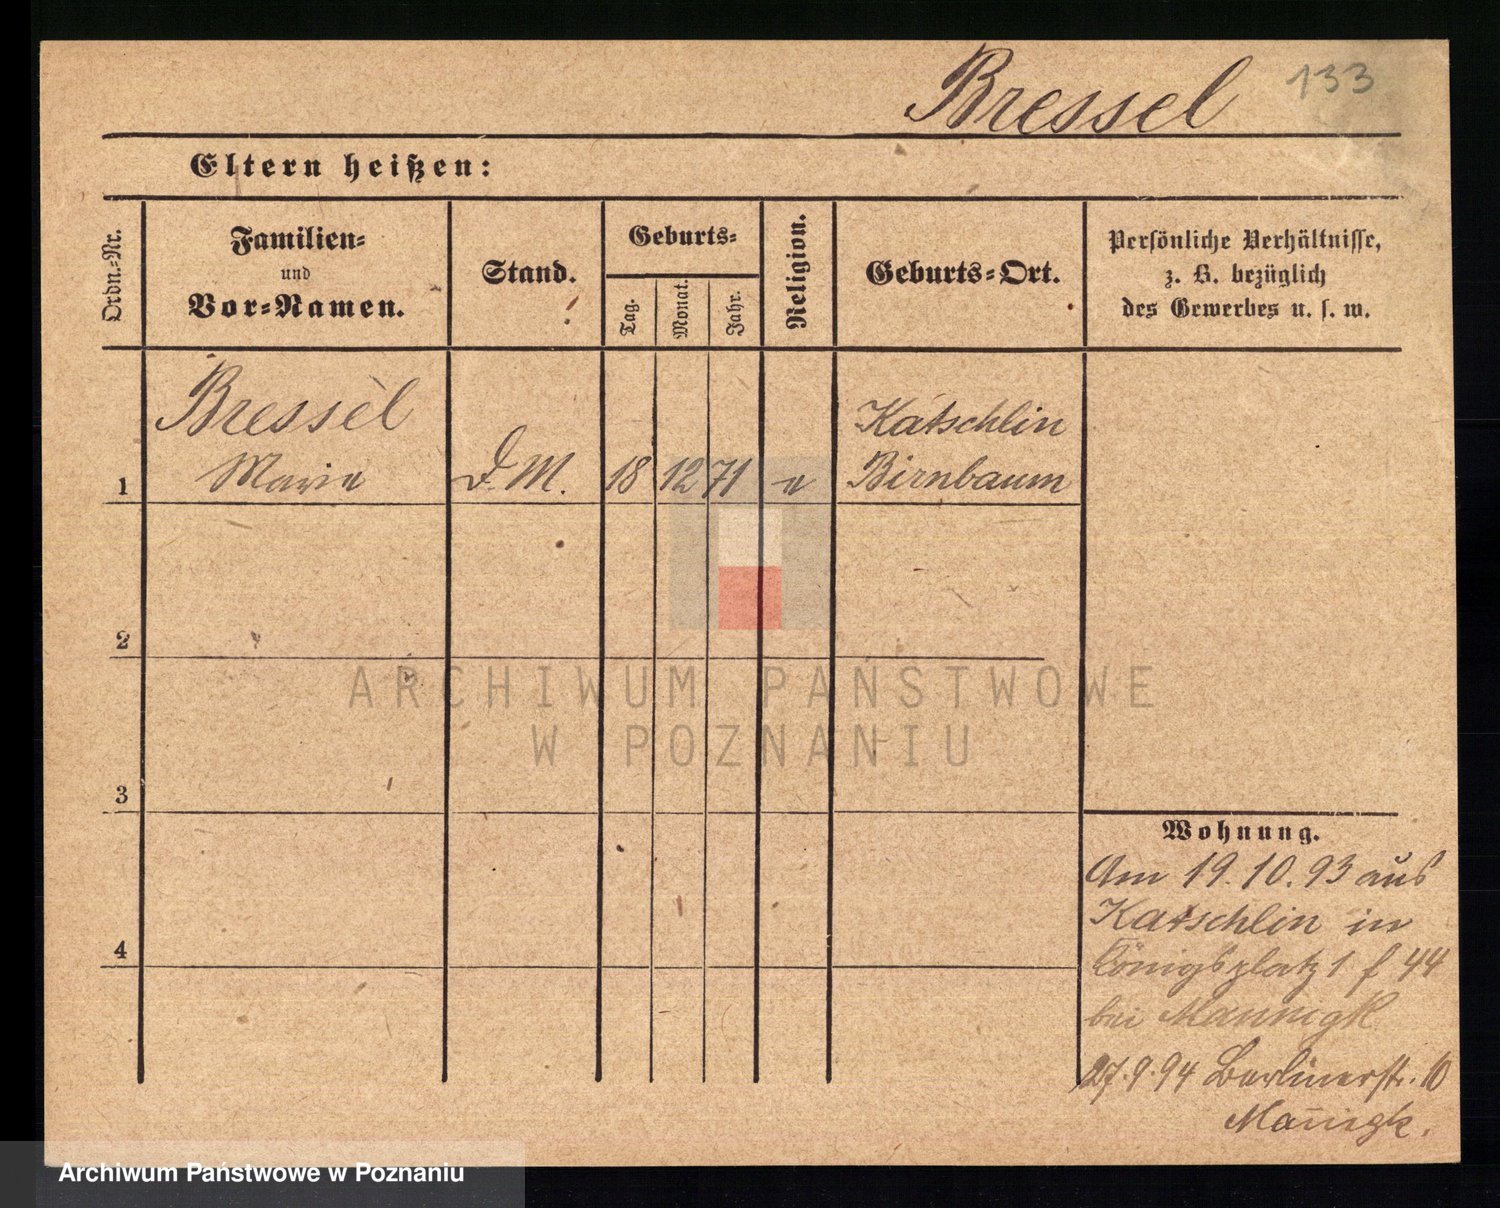 Bressel 133
Eltern heißen:
Ordn.-Nr.
Familien-
und
Vor-Namen.
Stand.
Geburts-
Tag.
Monat.
Jahr.
Religion.
Geburts-Ort.
Persönliche Verhältnisse,
z. B. bezüglich
des Gewerbes u. s. w.
Bressel
Marie
1
D. M.
18 12 71
Katschlin
Birnbaum
2
3
4
ARCHIWUM PAŃSTWOWE
W POZNANIU
Wohnung.
Am 19.10.93 aus
Katschlin in
Königsplatz 1 f 44
bei Mannigk
27.9.94 Berlinerstr. 10
Man̄igk.
Archiwum Państwowe w Poznaniu